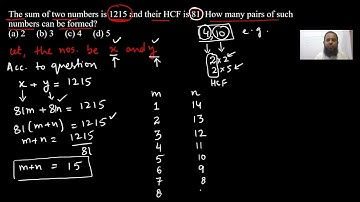 The sum of two numbers is 1215 and their HCF is 81 How many pairs of such
numbers can be formed?
(a) 2 (b) 3 (c) 4 (d) 5
Let, the nos. be x and y
Acc. to question
x + y = 1215
81m + 81n = 1215
81 (m+n) = 1215
m+n = 1215
81
m+n = 15
m n
1 14
2 13
3 12
4 11
5 10
6 9
7 8
8
4, 10 e.g.
2 × 2
2 × 5
HCF